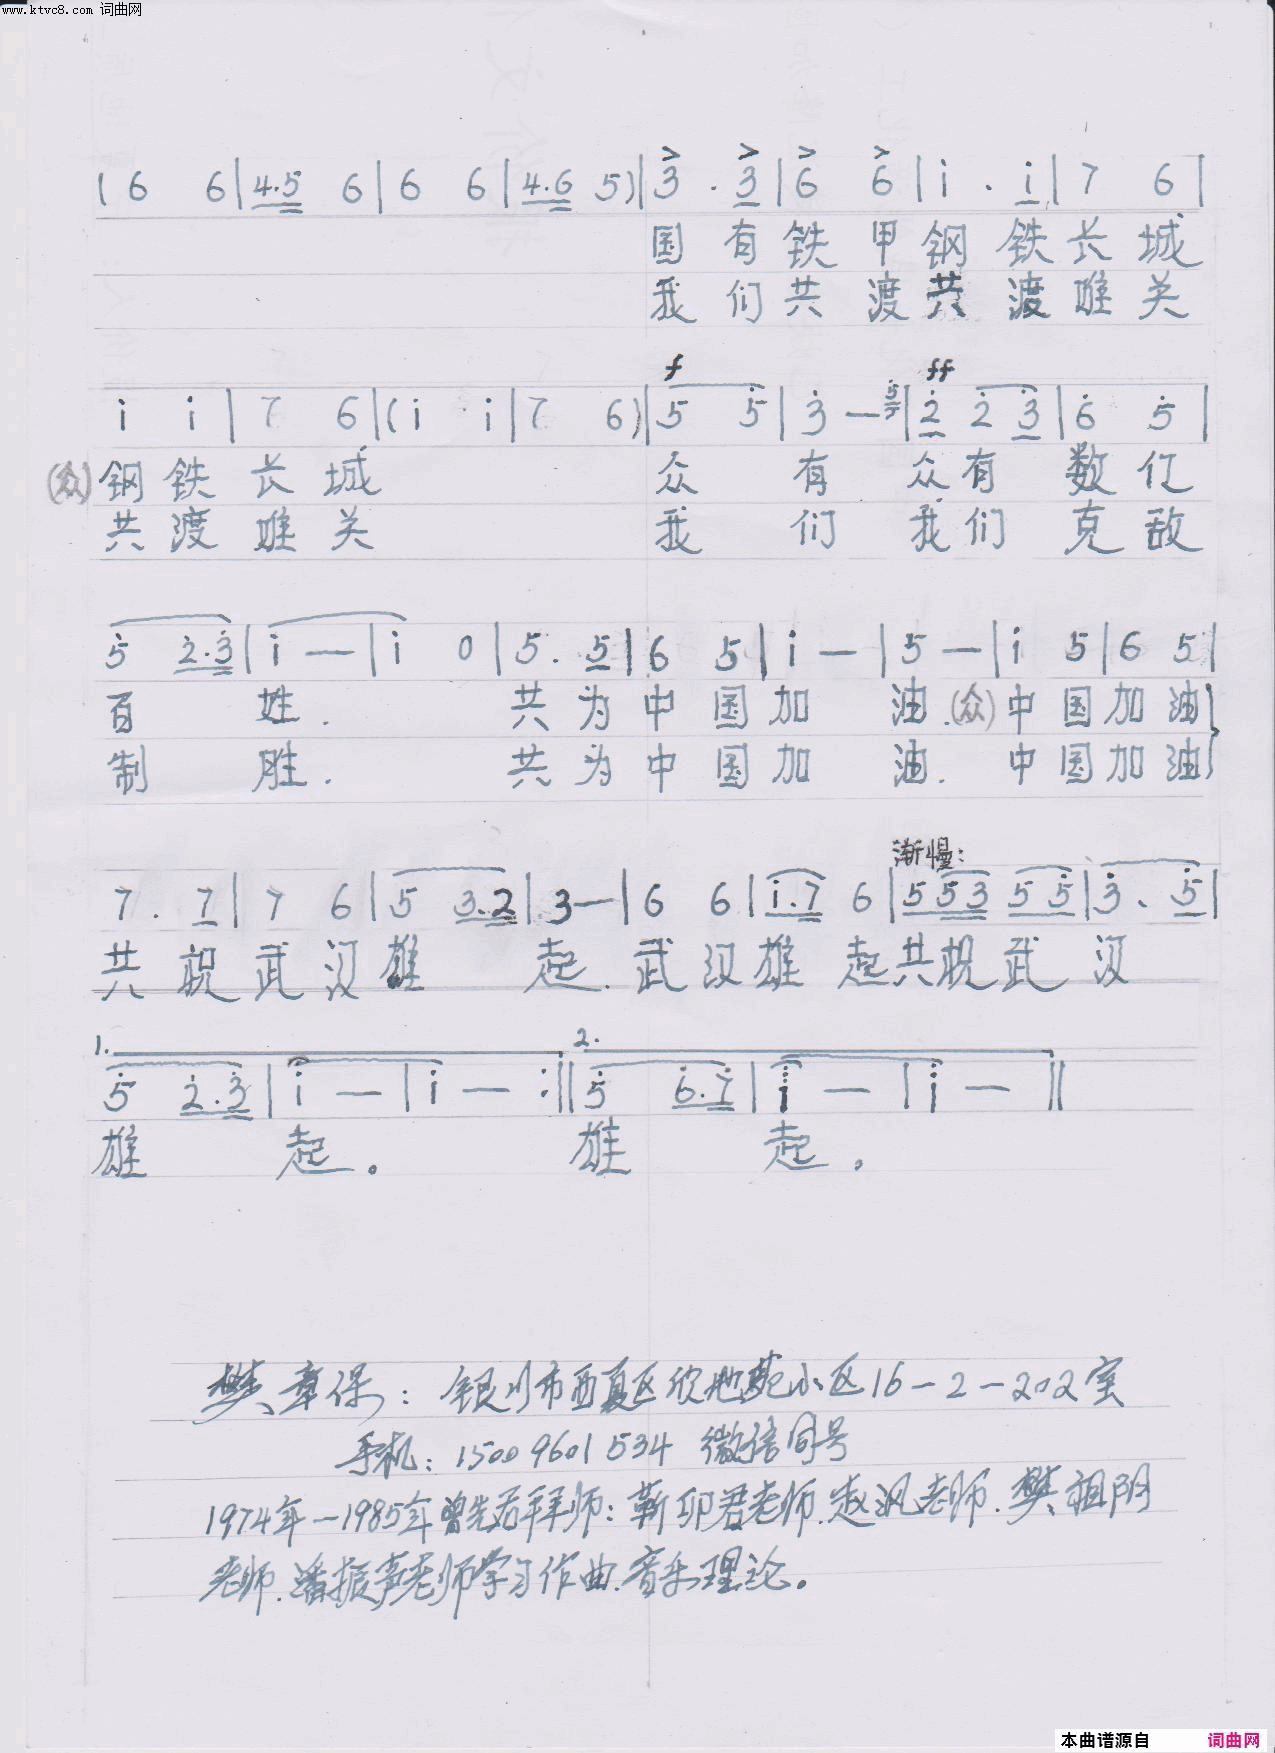 www.ktvc8.com 词曲网
(6 6|4.5 6|6 6|4.6 5)|3 . 3|6 6|i . i|7 6|
国有铁甲钢铁长城
我们共渡共渡难关
f ff
i i|7 6|(i i|7 6)|5 5|3 — 5|2 2 3|6 5|
(众)钢铁长城 众有众有数亿
共渡难关 我们我们克敌
5 2.3|i —|i 0|5. 5|6 5|i —|5 —|i 5|6 5|
百姓. 共为中国加油.(众)中国加油
制胜. 共为中国加油. 中国加油
渐慢:
7. 7|7 6|5 3.2|3—|6 6|i.7 6|5 5 3 5 5|3. 5|
共祝武汉雄起.武汉雄起共祝武汉
1. 2.
5 2.3|i —|i — :||5 6.7|i —|i —||
雄起。雄起。
樊章保:银川市西夏区欣地苑小区16-2-202室
手机:15009601534 微信同号
1974年-1985年曾先后拜师:靳卯君老师.赵汎老师.樊祖荫
老师.潘振声老师学习作曲.音乐理论。
本曲谱源自 词曲网